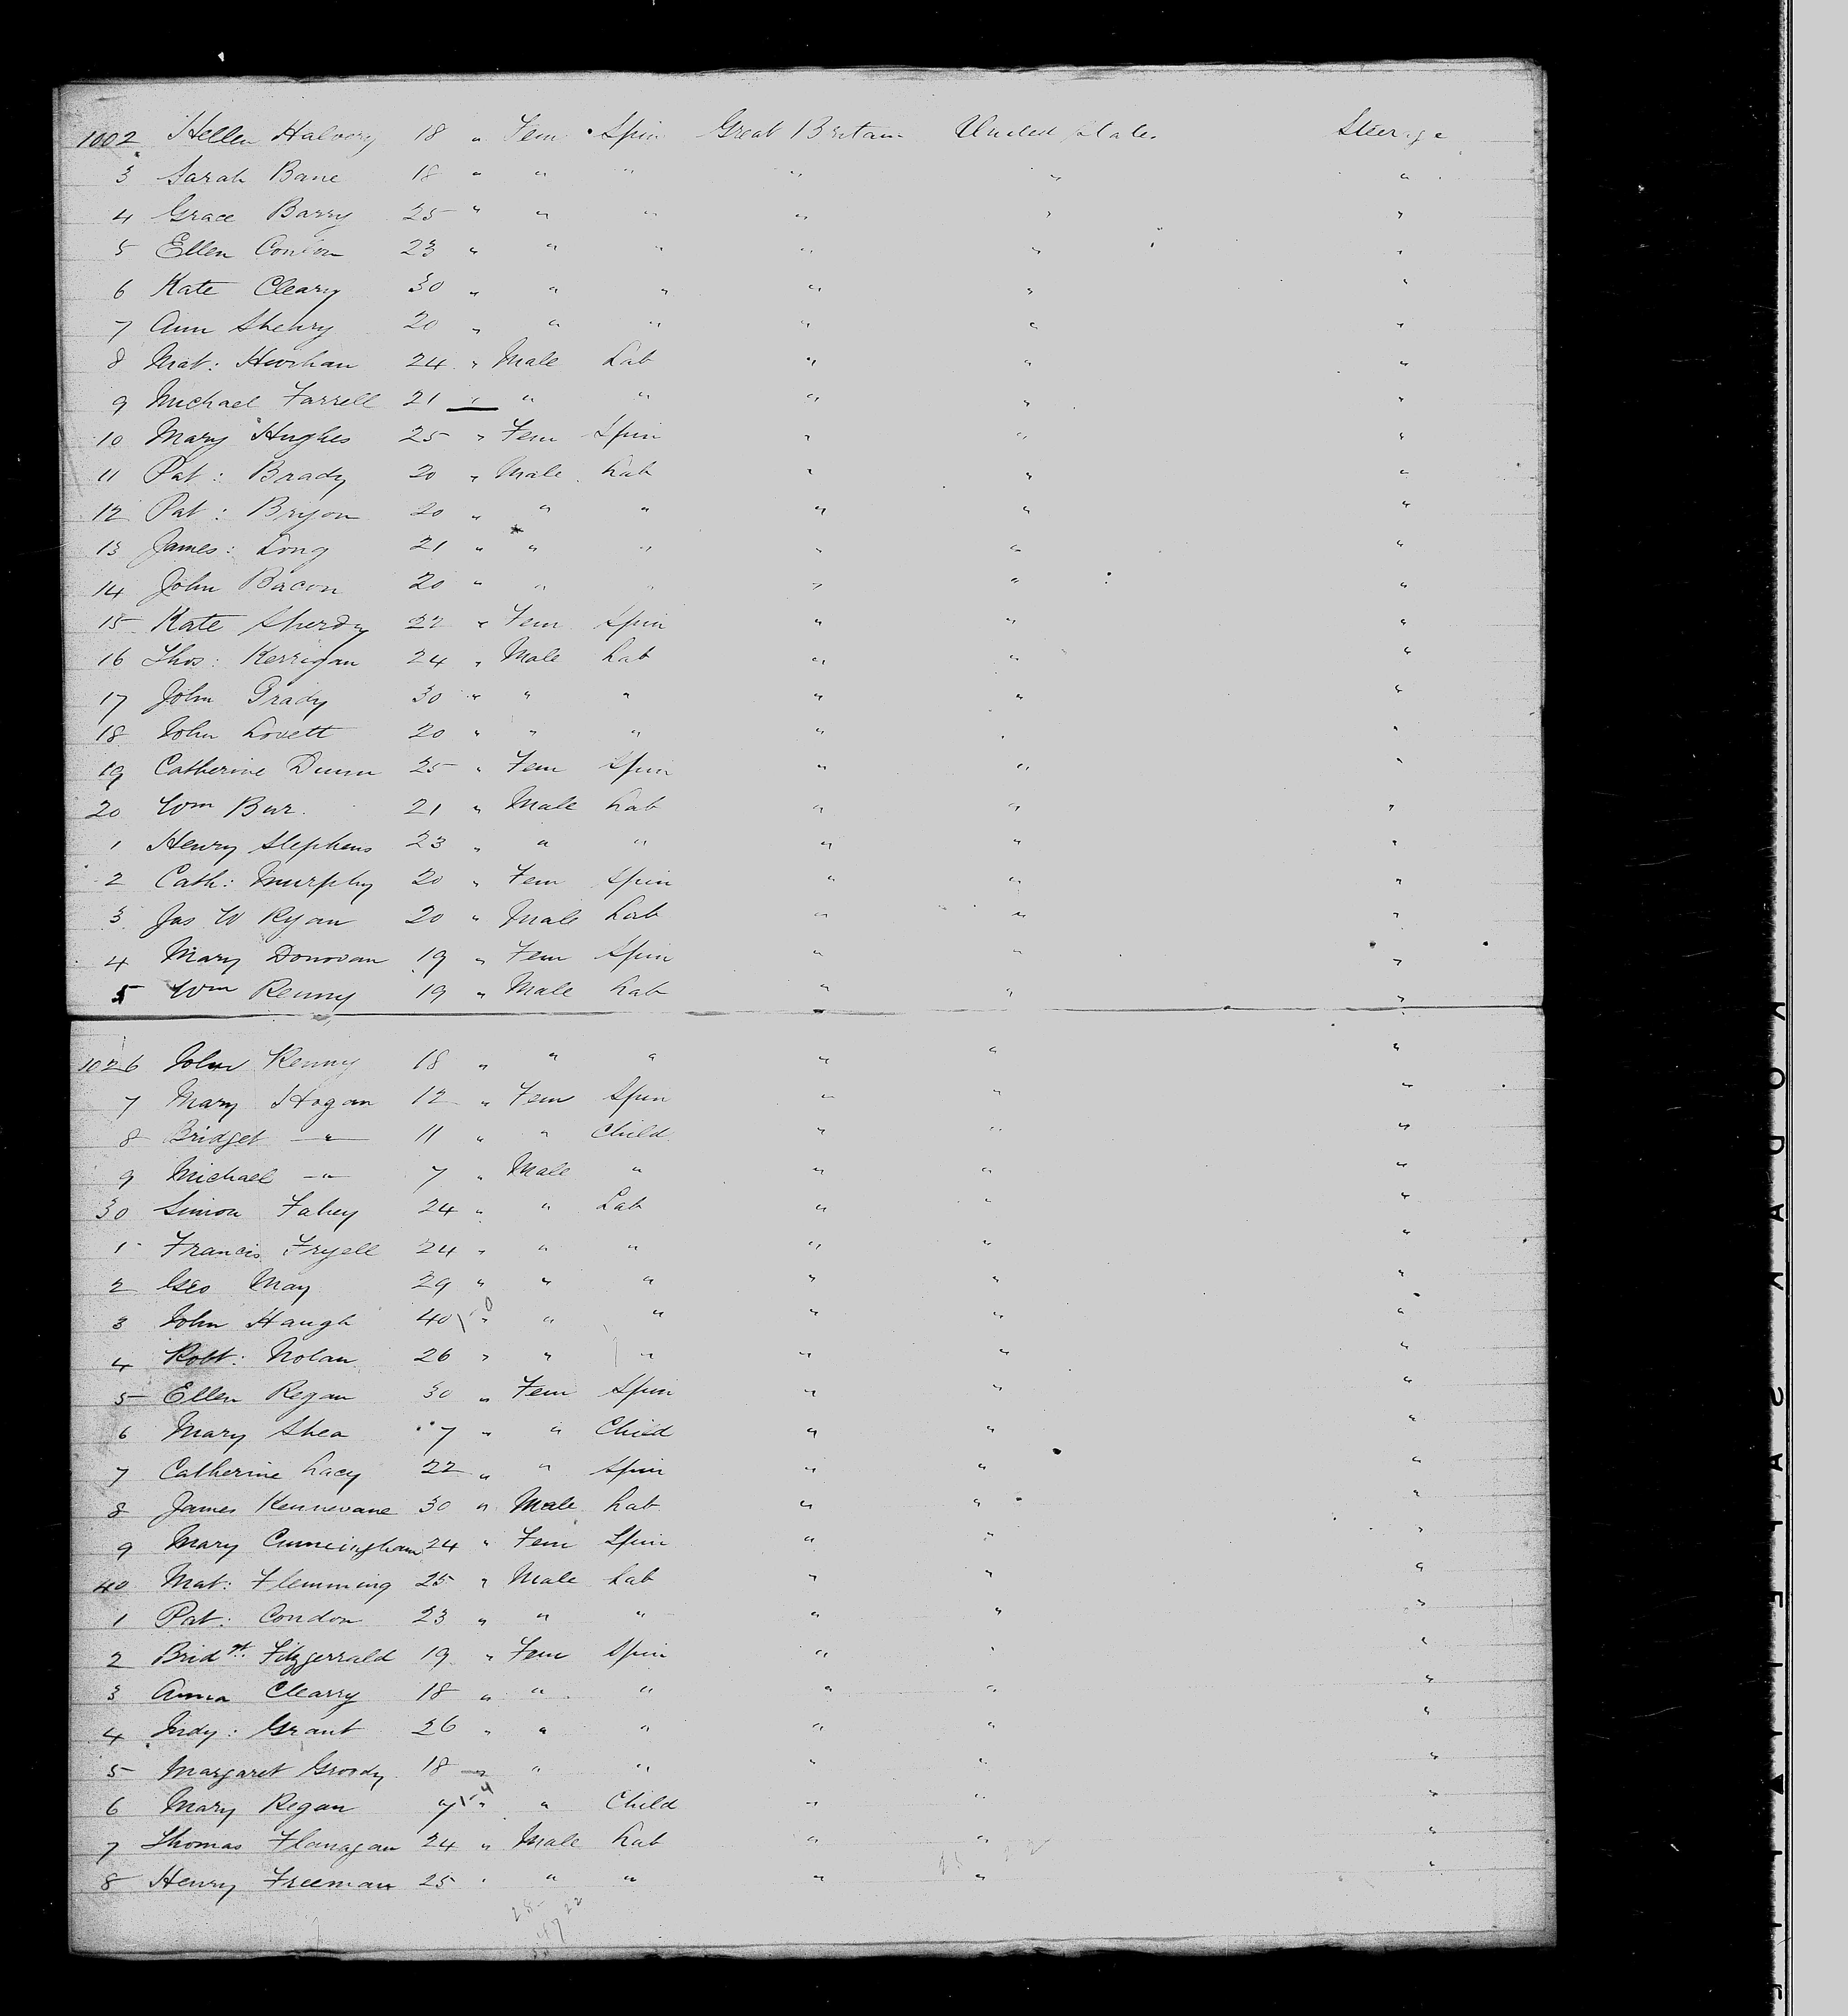 1002 Hellen Halvery 18 " Fem Spin Great Britain United States Steerage
3 Sarah Bane 18 " " " " " "
4 Grace Barry 25 " " " " " "
5 Ellen Conlon 23 " " " " " "
6 Kate Cleary 30 " " " " " "
7 Ann Shehry 20 " " " " " "
8 Mat: 24 " Male Lab " " "
9 Michael Farrell 21 " " " " " "
10 Mary Hughes 25 " Fem Spin " " "
11 Pat: Brady 20 " Male Lab " " "
12 Pat: Bryon 20 " " " " " "
13 James: Long 21 " " " " " "
14 John Bacon 20 " " " " " "
15 Kate 22 " Fem Spin " " "
16 Thos: Kerrigan 24 " Male Lab " " "
17 John Grady 30 " " " " " "
18 John Lovett 20 " " " " " "
19 Catherine Dunn 25 " Fem Spin " " "
20 Wm Bur. 21 " Male Lab " " "
1 Henry Stephens 23 " " " " " "
2 Cath: Murphy 20 " Fem Spin " " "
3 Jas W Ryan 20 " Male Lab " " "
4 Mary Donovan 19 " Fem Spin " " "
5 Wm Kenny 19 " Male Lab " " "
1026 John Kenny 18 " " " " " "
7 Mary Hogan 12 " Fem Spin " " "
8 Bridget —"— 11 " " Child " " "
9 Michael —"— 7 " Male " " " "
30 Simon Fahey 24 " " Lab " " "
1 Francis Fryell 24 " " " " " "
2 Geo May 29 " " " " " "
3 John Haugh 40 " " " " " "
4 Robt: Nolan 26 " " " " " "
5 Ellen Regan 30 " Fem Spin " " "
6 Mary Shea 7 " " Child " " "
7 Catherine Lacy 22 " " Spin " " "
8 James Kennevane 30 " Male Lab " " "
9 Mary Cunningham 24 " Fem Spin " " "
40 Mat: Flemming 25 " Male Lab " " "
1 Pat: Condon 23 " " " " " "
2 Bridgt. Fitzgerrald 19 " Fem Spin " " "
3 Anna Clearry 18 " " " " " "
4 Indy: Grant 26 " " " " " "
5 Margaret Groody 18 " " " " " "
6 Mary Regan " " Child " " "
7 Thomas Flanagan 24 " Male Lab " " "
8 Henry Freeman 25 " " " " " "
KODAK SAFETY